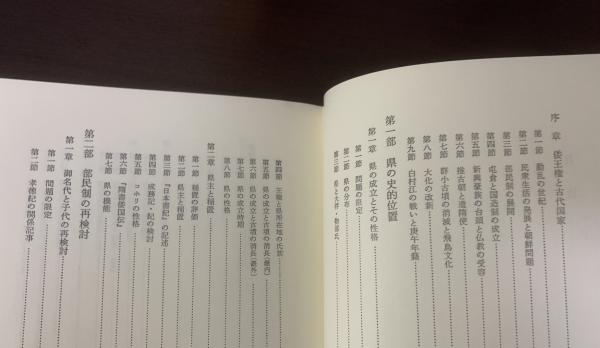 序章 倭王権と古代国家
第一節 動乱の世紀
第二節 民衆生活の発展と朝鮮問題
第三節 部民制の展開
第四節 屯倉と国造制の成立
第五節 新興豪族の台頭と仏教の受容
第六節 推古朝と遣隋使
第七節 群小古墳の消滅と飛鳥文化
第八節 大化の改新
第九節 白村江の戦いと庚午年籍
第一部 県の史的位置
第一章 県の成立とその性格
第一節 問題の限定
第二節 県の分布
第三節 県と大伴・物部氏
第四節 王権と所在地の氏族
第五節 県の成立と古墳の消長(畿内)
第六節 県の成立と古墳の消長(畿外)
第七節 県の成立時期
第八節 県の性格
第二章 県主と稲置
第一節 稲置の評価
第二節 県主と稲置
第三節 『日本書紀』の記述
第四節 成務記・紀の検討
第五節 コホリの性格
第六節 『隋書倭国伝』
第七節 県の機能
第二部 部民制の再検討
第一章 御名代と子代の再検討
第一節 問題の限定
第二節 孝徳紀の関係記事